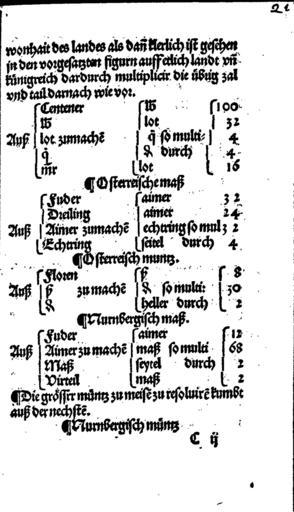 21
wonhait des landes als dañ klerlich ist gesehen
in den vorgesatzten figurn auff etlich landt vñ
künigreich dardurch multiplicir die übrig zal
vnd tail darnach wie vor.
Centener ℔ 100
℔ lot 32
Auß lot zumachē q̃ so multi: 4
q̃ ₰ durch 4
mr lot 16
¶Osterreische maß
Fuder aimer 32
Dreiling aimer 24
Auß Aimer zumachē echtring so mul 32
Echtring seitel durch 4
¶Osterreisch muntz.
Floren ß 8
Auß ß zu machē ₰ so multi: 30
₰ heller durch 2
¶Nurnbergisch maß.
Fuder aimer 12
Auß Aimer zu machē maß so multi 68
Maß seytel durch 2
Virteil maß 2
¶Die grösser müntz zu meisē zu resoluirē kumbt
auß der nechstē.
¶Nurnbergisch müntz
C ij